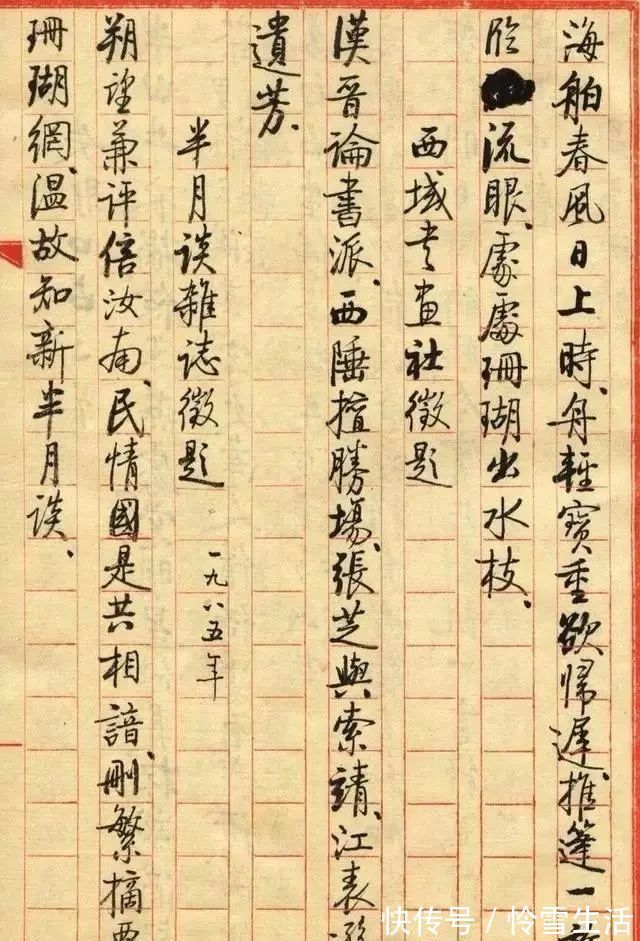 海舶春風日上時、舟輕寶重欲歸遲、推篷一
流眼、處處珊瑚出水枝、
西域書畫社徵題
漢晉論書派、西陲擅勝場、張芝與索靖、江表
遺芳、
半月談雜誌徵題 一九八五年
朔望兼評倍汝南、民情國是共相諳、刪繁摘
珊瑚網、温故知新半月談、
快传号/怜雪生活